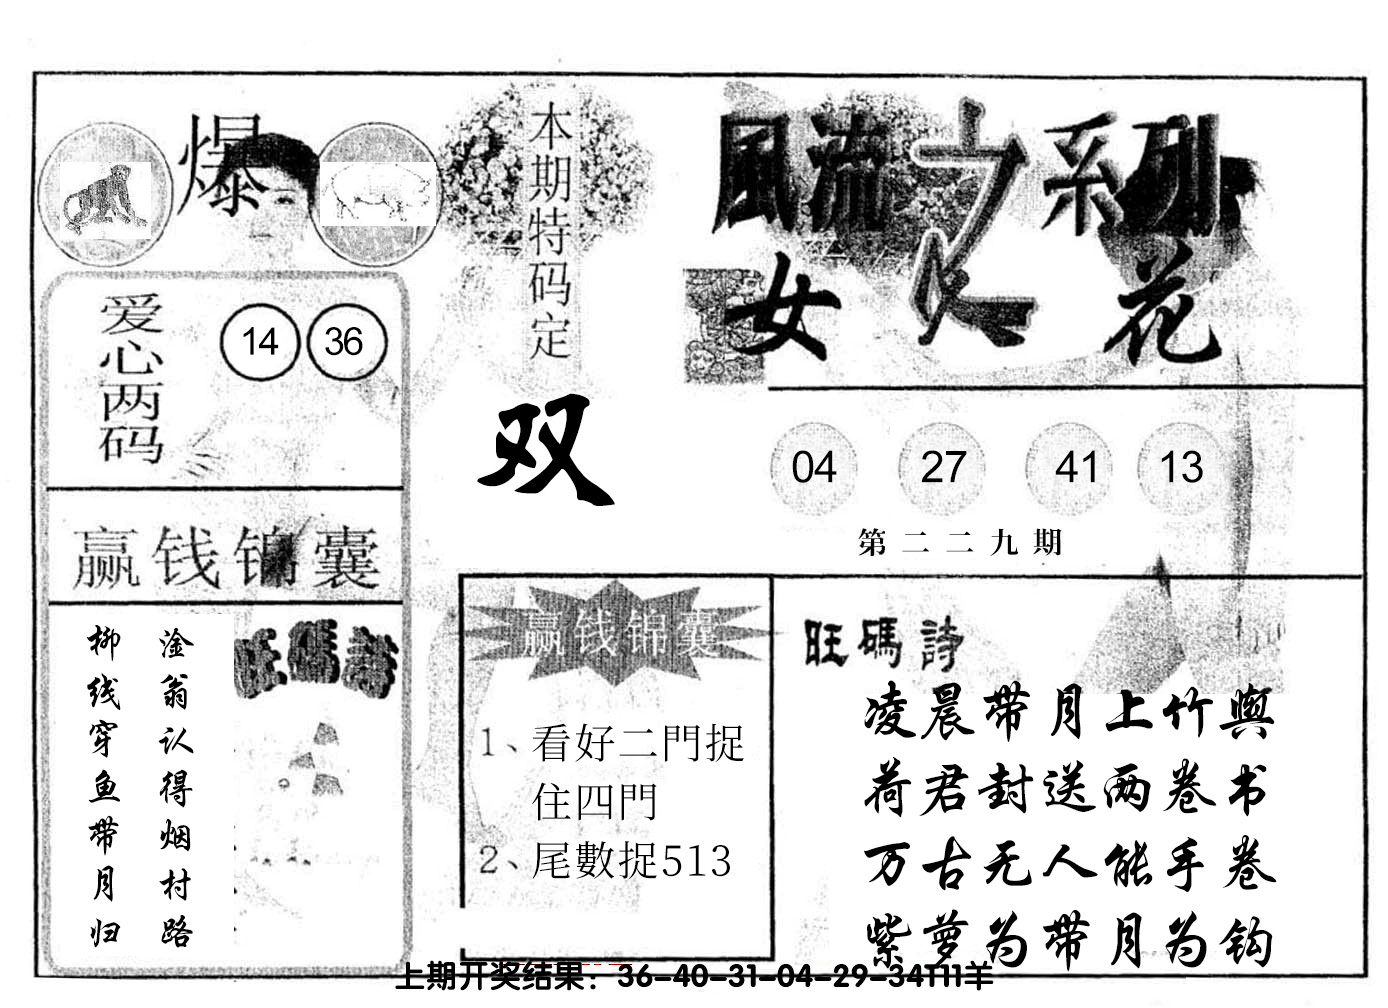 爆
本期特码定
双
風流之系列
女人花
爱心两码
14 36
04 27 41 13
第二二九期
赢钱锦囊
淦翁认得烟村路
柳线穿鱼带月归
旺碼詩
赢钱锦囊
1、看好二門捉
住四門
2、尾數捉513
旺碼詩
凌晨带月上竹舆
荷君封送两卷书
万古无人能手卷
紫萝为带月为钩
上期开奖结果：36-40-31-04-29-34T11羊